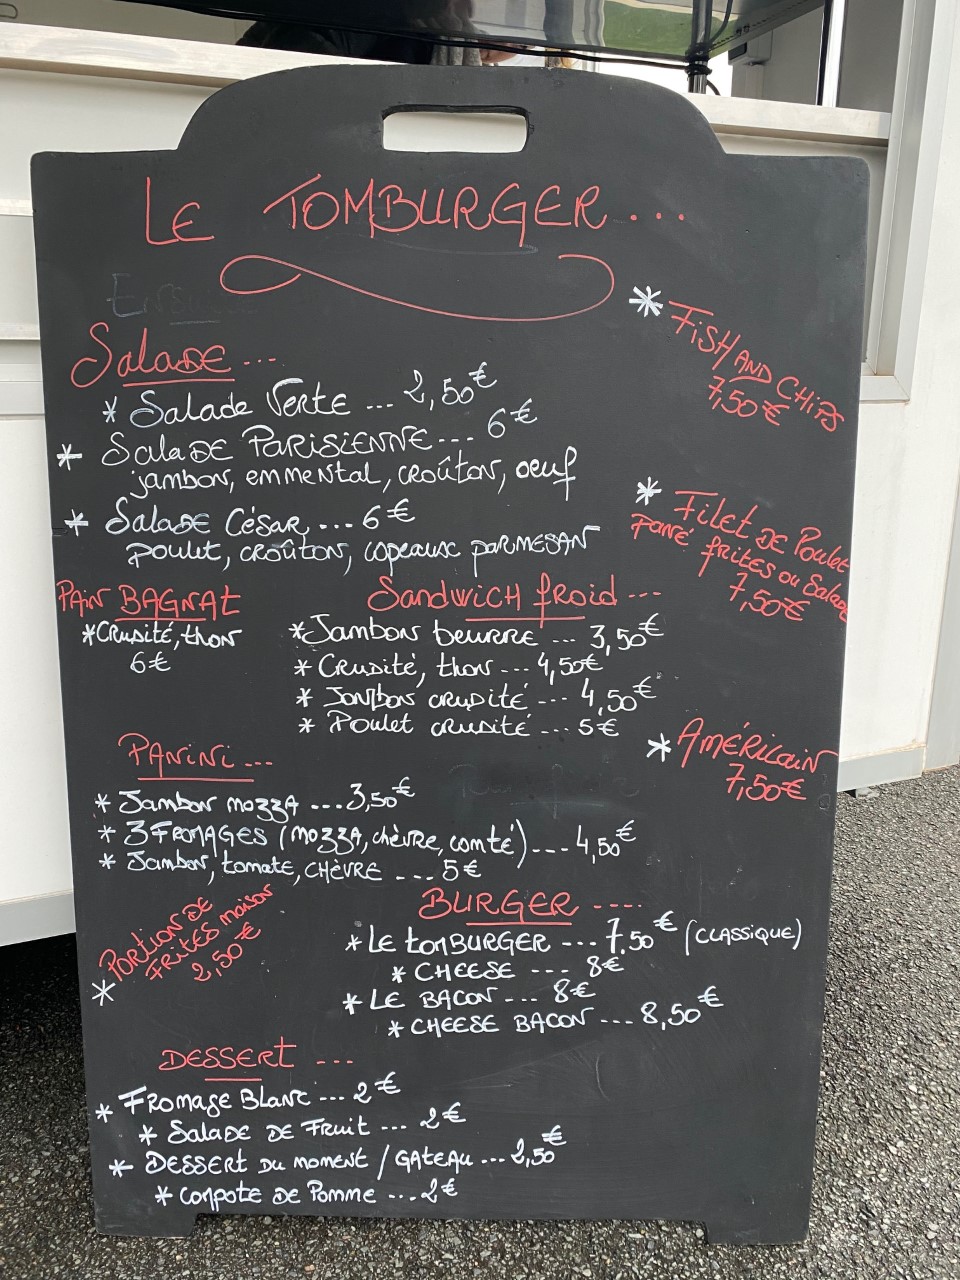 LE TOMBURGER...
SALADE ...
* Salade Verte ... 2,50€
* SALADE PARISIENNE... 6€
jambon, emmental, croûton, oeuf
* SALADE CÉSAR, ... 6€
poulet, croûton, copeaux parmesan
PAIN BAGNAT
* Crudité, thon
6€
SANDWICH froid ...
* Jambon beurre ... 3,50€
* Crudité, thon ... 4,50€
* Jambon crudité ... 4,50€
* Poulet crudité ... 5€
PANINI ...
* Jambon mozza ... 3,50€
* 3 FROMAGES (mozza, chèvre, comté) ... 4,50€
* Jambon, tomate, CHÈVRE ... 5€
* PORTION DE
FRITES maison
2,50€
BURGER ....
* LE tomBURGER ... 7.50€ (CLASSIQUE)
* CHEESE ... 8€
* LE BACON ... 8€
* CHEESE BACON ... 8,50€
DESSERT ...
* FROMAGE BLANC ... 2€
* SALADE DE FRUIT ... 2€
* DESSERT DU MOMENT / GATEAU ... 2,50€
* COMPOTE DE POMME ... 2€
* FISH AND CHIPS
7,50€
* FILET DE Poulet
PANÉ frites ou Salade
7,50€
* AMÉRICAIN
7,50€